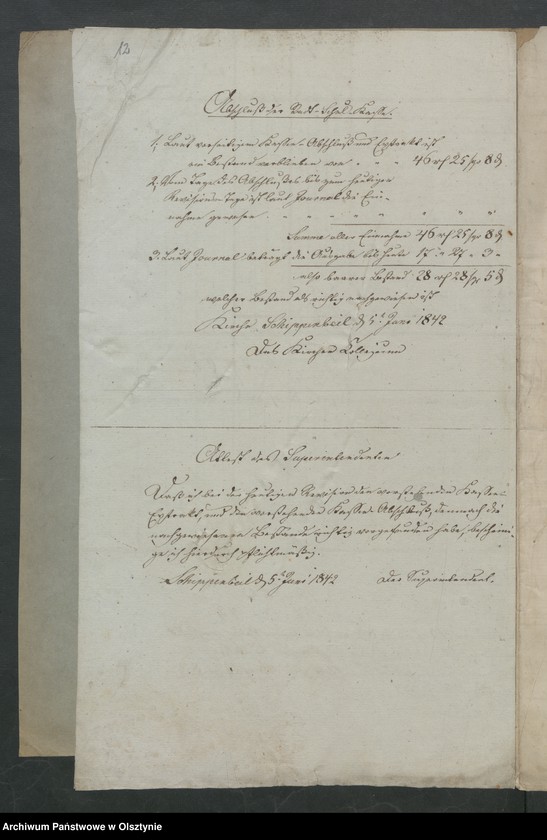 12
Abschluß der Stadt-Schul-Kasse.
1, Laut vorseitigem Kassen-Abschluß und Extrakt ist
ein Bestand verblieben von . - - 46 rf 25 sgr 8 ₰
2, Vom Tage des Abschlußes bis zum heutigen
Revisions-Tage ist laut Journal die Ein-
nahme gewesen
Summa aller Einnahme 46 rf 25 sgr 8 ₰
3, Laut Journal beträgt die Ausgabe bis heute 17 - 27 - 3 -
also baarer Bestand 28 rf 28 sgr 5 ₰
welcher Bestand als richtig nachgewiesen ist
Kirche Schippenbeil d 5t Juni 1842
Das Kirchen Collegium
Attest des Superintendenten
Daß ich bei der heutigen Revision den vorstehenden Kassen-
Extrakt, und den vorstehenden Kassen-Abschluß, demnach die
nachgewiesenen Bestände richtig vorgefunden habe, beschei-
ge ich hierdurch pflichtmäßig.
Schippenbeil d 5t Juni 1842 Der Superintendent.
Archiwum Państwowe w Olsztynie